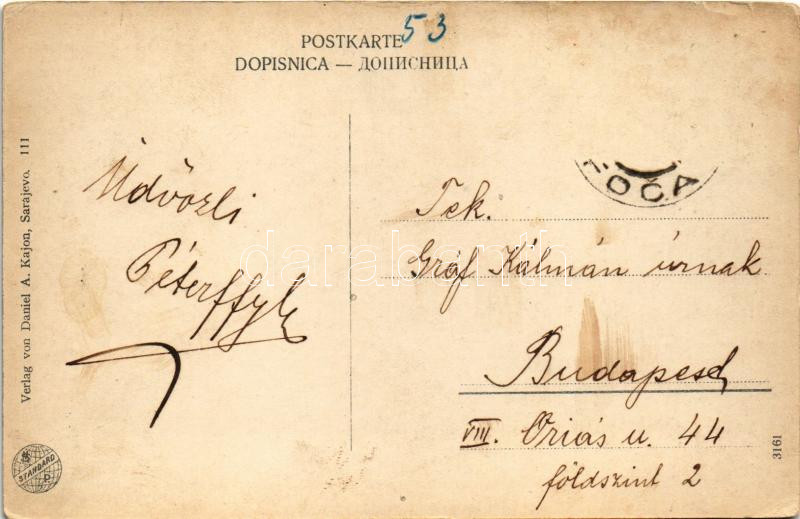 53
POSTKARTE
DOPISNICA — ДОПИСНИЦА
Verlag von Daniel A. Kajon, Sarajevo. 111
Üdvözli
Péterffy
OČA
Tek.
Gróf Kálmán úrnak
Budapest
VIII. Óriás u. 44
földszint 2
3161
STANDARD
darabanth